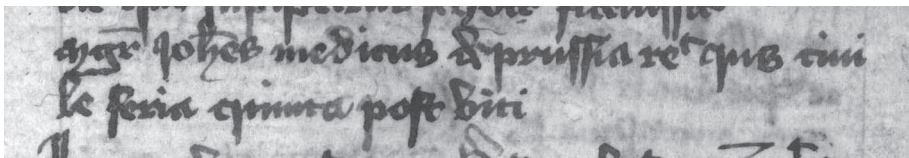 mgr Johes medicus de prussia ret Jus ciui
le feria quinta post viti